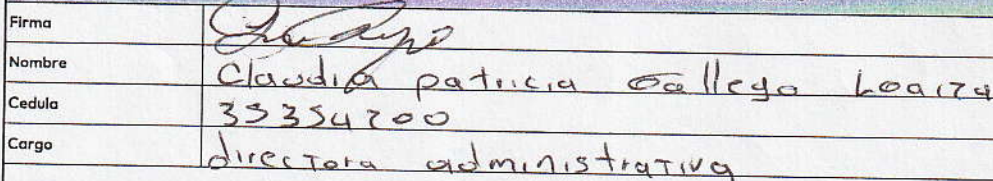 Firma
Nombre Claudia patricia Gallego Loaiza
Cedula
Cargo directora administrativa